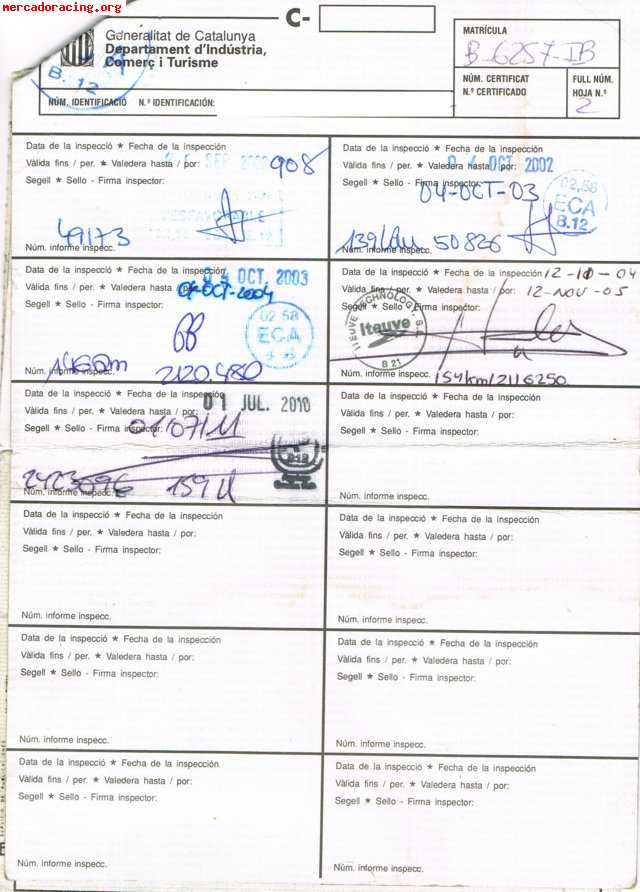 mercadoracing.org
C-
Generalitat de Catalunya
Departament d'Indústria,
Comerç i Turisme
B. 12
NÚM. IDENTIFICACIÓ N.º IDENTIFICACIÓN:
MATRÍCULA
B-6257-IB
NÚM. CERTIFICAT
N.º CERTIFICADO
FULL NÚM.
HOJA N.º
2
Data de la inspecció * Fecha de la inspección
Vàlida fins / per. * Valedera hasta / por: SEP 908
Segell * Sello - Firma inspector:
49173
Núm. informe inspecc.
Data de la inspecció * Fecha de la inspección
Vàlida fins / per. * Valedera hasta / por: 04 OCT 2002
Segell * Sello - Firma inspector:
04-OCT-03
02,58
ECA
B.12
50826
Núm. informe inspecc.
Data de la inspecció * Fecha de la inspección 04 OCT. 2003
Vàlida fins / per. * Valedera hasta / por: 04-OCT-2004
Segell * Sello - Firma inspector:
02 58
ECA
Núm. informe inspecc. 2120.480
Data de la inspecció * Fecha de la inspección 12-10-04
Vàlida fins / per. * Valedera hasta / por: 12-NOV-05
Segell * Sello - Firma inspector:
ITEUVE TECHNOLOGY, S.L.
Iteuve
B 21
Núm. informe inspecc. 154km/2116250
Data de la inspecció * Fecha de la inspección
Vàlida fins / per. * Valedera hasta / por: 01 JUL. 2010
Segell * Sello - Firma inspector: 01/07/11
Núm. informe inspecc. 159
Data de la inspecció * Fecha de la inspección
Vàlida fins / per. * Valedera hasta / por:
Segell * Sello - Firma inspector:
Núm. informe inspecc.
Data de la inspecció * Fecha de la inspección
Vàlida fins / per. * Valedera hasta / por:
Segell * Sello - Firma inspector:
Núm. informe inspecc.
Data de la inspecció * Fecha de la inspección
Vàlida fins / per. * Valedera hasta / por:
Segell * Sello - Firma inspector:
Núm. informe inspecc.
Data de la inspecció * Fecha de la inspección
Vàlida fins / per. * Valedera hasta / por:
Segell * Sello - Firma inspector:
Núm. informe inspecc.
Data de la inspecció * Fecha de la inspección
Vàlida fins / per. * Valedera hasta / por:
Segell * Sello - Firma inspector:
Núm. informe inspecc.
Data de la inspecció * Fecha de la inspección
Vàlida fins / per. * Valedera hasta / por:
Segell * Sello - Firma inspector:
Núm. informe inspecc.
Data de la inspecció * Fecha de la inspección
Vàlida fins / per. * Valedera hasta / por:
Segell * Sello - Firma inspector:
Núm. informe inspecc.